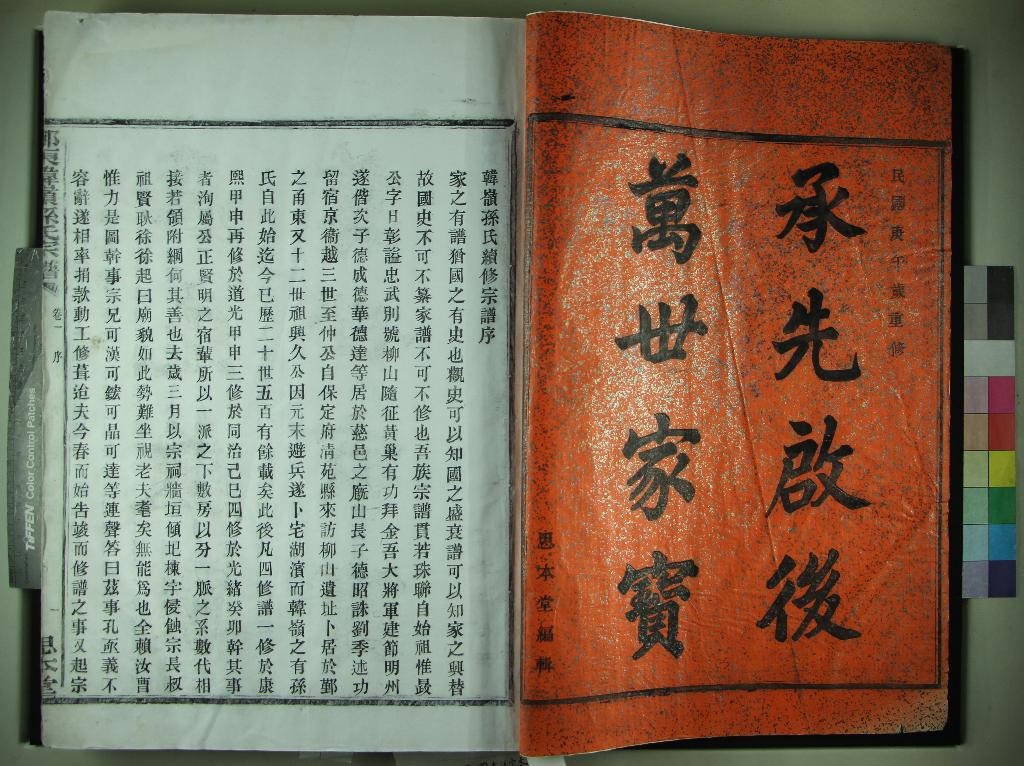 民國庚午歲重修
承先啟後
萬世家寶
思本堂編輯
韓嶺孫氏續修宗譜序
家之有譜猶國之有史也觀史可以知國之盛衰譜可以知家之興替
故國史不可不纂家譜不可不修也吾族宗譜貫若珠聯自始祖惟晸
公字日彰謚忠武別號柳山隨征黃巢有功拜金吾大將軍建節明州
遂偕次子德成德華德達等居於慈邑之厫山長子德昭誅劉季述功
留宿京衞越三世至仲公自保定府清苑縣來訪柳山遺址卜居於鄞
之甬東又十二世祖興久公因元末避兵遂卜宅湖濱而韓嶺之有孫
氏自此始迄今已歷二十世五百有餘載矣此後凡四修譜一修於康
熙甲申再修於道光甲申三修於同治己巳四修於光緒癸卯幹其事
者洵屬公正賢明之宿輩所以一派之下數房以分一脈之系數代相
接若領附綱何其善也去歲三月以宗祠牆垣傾圮棟宇侵蝕宗長叔
祖賢耿徐徐起曰廟貌如此勢難坐視老夫耄矣無能爲也全賴汝曹
惟力是圖幹事宗兄可漢可鋐可品可達等連聲答曰茲事孔亟義不
容辭遂相率捐款動工修葺迨夫今春而始告竣而修譜之事又起宗
鄞東韓嶺孫氏宗譜
卷一
序
一
思本堂
TIFFEN Color Control Patches